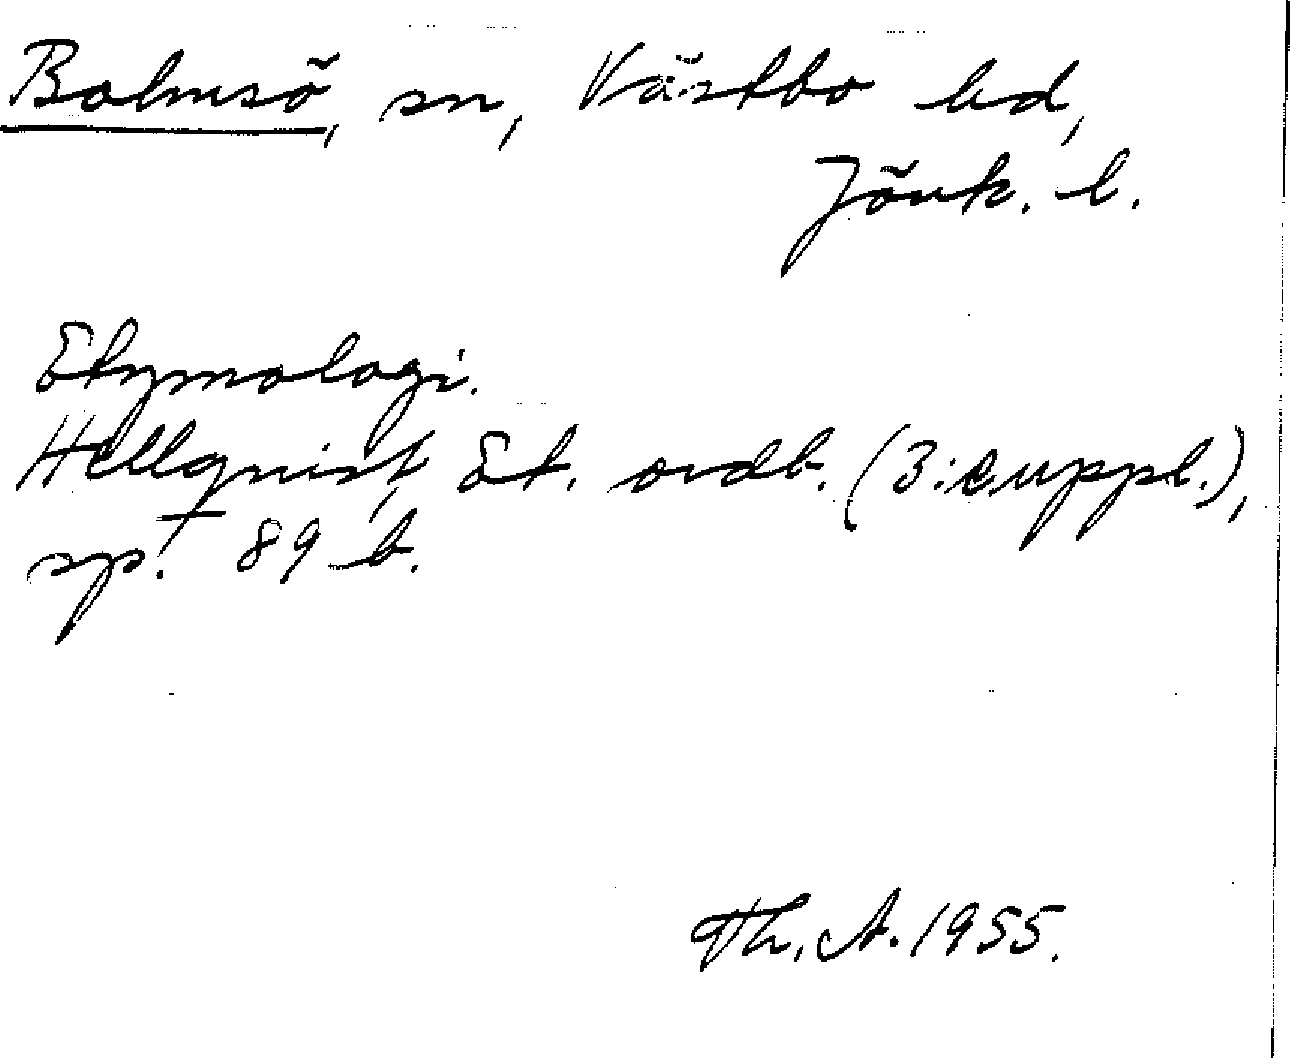 Bolmsö, sn, Västbo hd,
Jönk. l.
Etymologi.
Hellquist, Et. ordb. (3:e uppl.),
sp. 89 b.
Th. A. 1955.